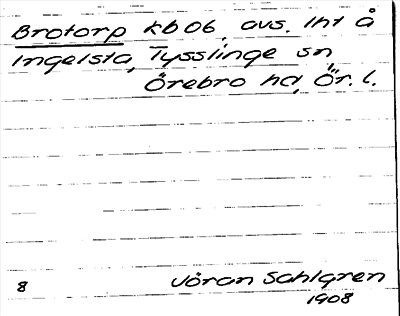 Brotorp kb 06, avs. lht å
Ingelsta, Tysslinge sn,
Örebro hd, Ör. l.
8
Jöran Sahlgren
1908